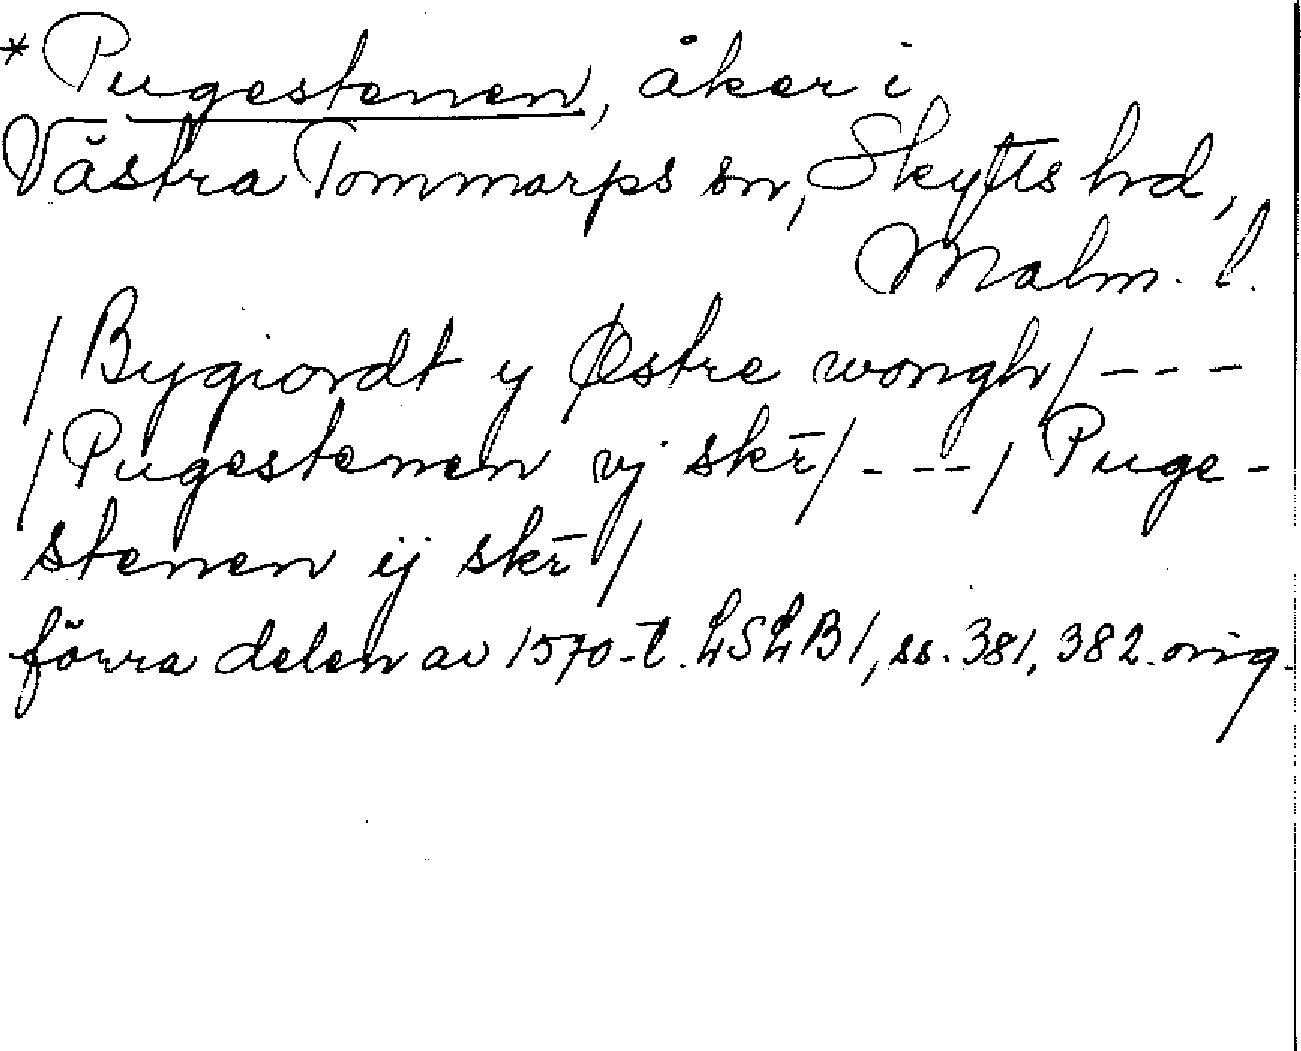 * Pugestenen, åker i
Västra Tommarps sn, Skytts hd,
Malm. l.
/ Bygiordt y Østre wongh / - - -
/ Pugestenen vj skr̄ / - - - / Puge-
stenen ij skr̄ /
förra delen av 1570-t. LSLB 1, ss. 381, 382. orig.